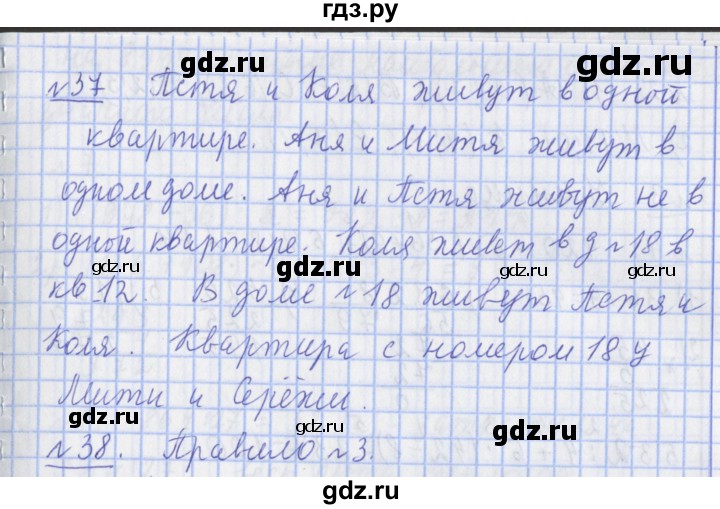 гдз.ру
gdz.ru gdz.ru
№37 Петя и Коля живут в одной
квартире. Аня и Митя живут в
gdz.ru gdz.ru
одном доме. Аня и Петя живут не в
одной квартире. Коля живет в д №18 в
gdz.ru gdz.ru gdz.ru
кв 12. В доме №18 живут Петя и
Коля. Квартира с номером 18 у
gdz.ru gdz.ru
Мити и Серёжи.
gdz.ru gdz.ru
№38. Правило №3.
gdz.ru